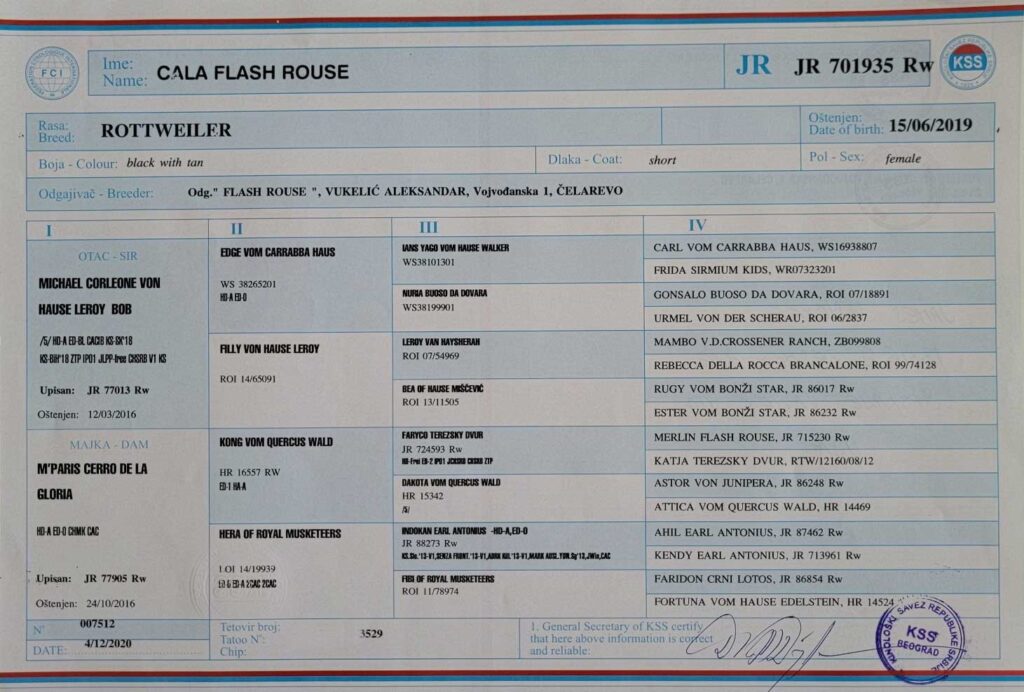 FCI
Ime:
Name: CALA FLASH ROUSE
JR JR 701935 Rw
KSS
Rasa:
Breed: ROTTWEILER
Oštenjen:
Date of birth: 15/06/2019
Boja - Colour: black with tan
Dlaka - Coat: short
Pol - Sex: female
Odgajivač - Breeder: Odg." FLASH ROUSE ", VUKELIĆ ALEKSANDAR, Vojvođanska 1, ČELAREVO
I
OTAC - SIR
MICHAEL CORLEONE VON
HAUSE LEROY BOB
/5/ HD-A ED-BL CACIB KS-BK'18
KS-BIH'18 ZTP IPO1 JLPP-free CHSRB V1 KS
Upisan: JR 77013 Rw
Oštenjen: 12/03/2016
MAJKA - DAM
M'PARIS CERRO DE LA
GLORIA
HD-A ED-0 CHMK CAC
Upisan: JR 77905 Rw
Oštenjen: 24/10/2016
II
EDGE VOM CARRABBA HAUS
WS 38265201
HD-A ED-0
FILLY VON HAUSE LEROY
ROI 14/65091
KONG VOM QUERCUS WALD
HR 16557 RW
ED-1 HA-A
HERA OF ROYAL MUSKETEERS
LOI 14/19939
III
IANS YAGO VOM HAUSE WALKER
WS38101301
NURIA BUOSO DA DOVARA
WS38199901
LEROY VAN HAYSHERAH
ROI 07/54969
BEA OF HAUSE MIŠČEVIĆ
ROI 13/11505
FARYCO TEREZSKY DVUR
JR 724593 Rw
HD-Frei ED-2 IPO1 JCHSRB CHSRB ZTP
DAKOTA VOM QUERCUS WALD
HR 15342
/5/
INDOKAN EARL ANTONIUS -HD-A,ED-0
JR 88273 Rw
FIBI OF ROYAL MUSKETEERS
ROI 11/78974
IV
CARL VOM CARRABBA HAUS, WS16938807
FRIDA SIRMIUM KIDS, WR07323201
GONSALO BUOSO DA DOVARA, ROI 07/18891
URMEL VON DER SCHERAU, ROI 06/2837
MAMBO V.D.CROSSENER RANCH, ZB099808
REBECCA DELLA ROCCA BRANCALONE, ROI 99/74128
RUGY VOM BONŽI STAR, JR 86017 Rw
ESTER VOM BONŽI STAR, JR 86232 Rw
MERLIN FLASH ROUSE, JR 715230 Rw
KATJA TEREZSKY DVUR, RTW/12160/08/12
ASTOR VON JUNIPERA, JR 86248 Rw
ATTICA VOM QUERCUS WALD, HR 14469
AHIL EARL ANTONIUS, JR 87462 Rw
KENDY EARL ANTONIUS, JR 713961 Rw
FARIDON CRNI LOTOS, JR 86854 Rw
FORTUNA VOM HAUSE EDELSTEIN, HR 14524
N° 007512
DATE: 4/12/2020
Tetovir broj:
Tatoo N°: 3529
Chip:
1. General Secretary of KSS certify
that here above information is correct
and reliable:
KINOLOŠKI SAVEZ REPUBLIKE SRBIJE
KSS
BEOGRAD